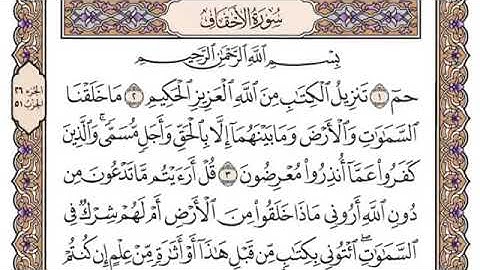 سُورَةُ الْأَحْقَافِ
بِسْمِ اللَّهِ الرَّحْمَٰنِ الرَّحِيمِ
حمٓ ۝١ تَنزِيلُ الْكِتَابِ مِنَ اللَّهِ الْعَزِيزِ الْحَكِيمِ ۝٢ مَا خَلَقْنَا
السَّمَاوَاتِ وَالْأَرْضَ وَمَا بَيْنَهُمَا إِلَّا بِالْحَقِّ وَأَجَلٍ مُّسَمًّى ۚ وَالَّذِينَ
كَفَرُوا عَمَّا أُنذِرُوا مُعْرِضُونَ ۝٣ قُلْ أَرَءَيْتُم مَّا تَدْعُونَ مِن
دُونِ اللَّهِ أَرُونِي مَاذَا خَلَقُوا مِنَ الْأَرْضِ أَمْ لَهُمْ شِرْكٌ فِي
السَّمَاوَاتِ ۖ ائْتُونِي بِكِتَابٍ مِّن قَبْلِ هَٰذَا أَوْ أَثَارَةٍ مِّنْ عِلْمٍ إِن كُنتُمْ
الجزء ٢٦
الحزب ٥١